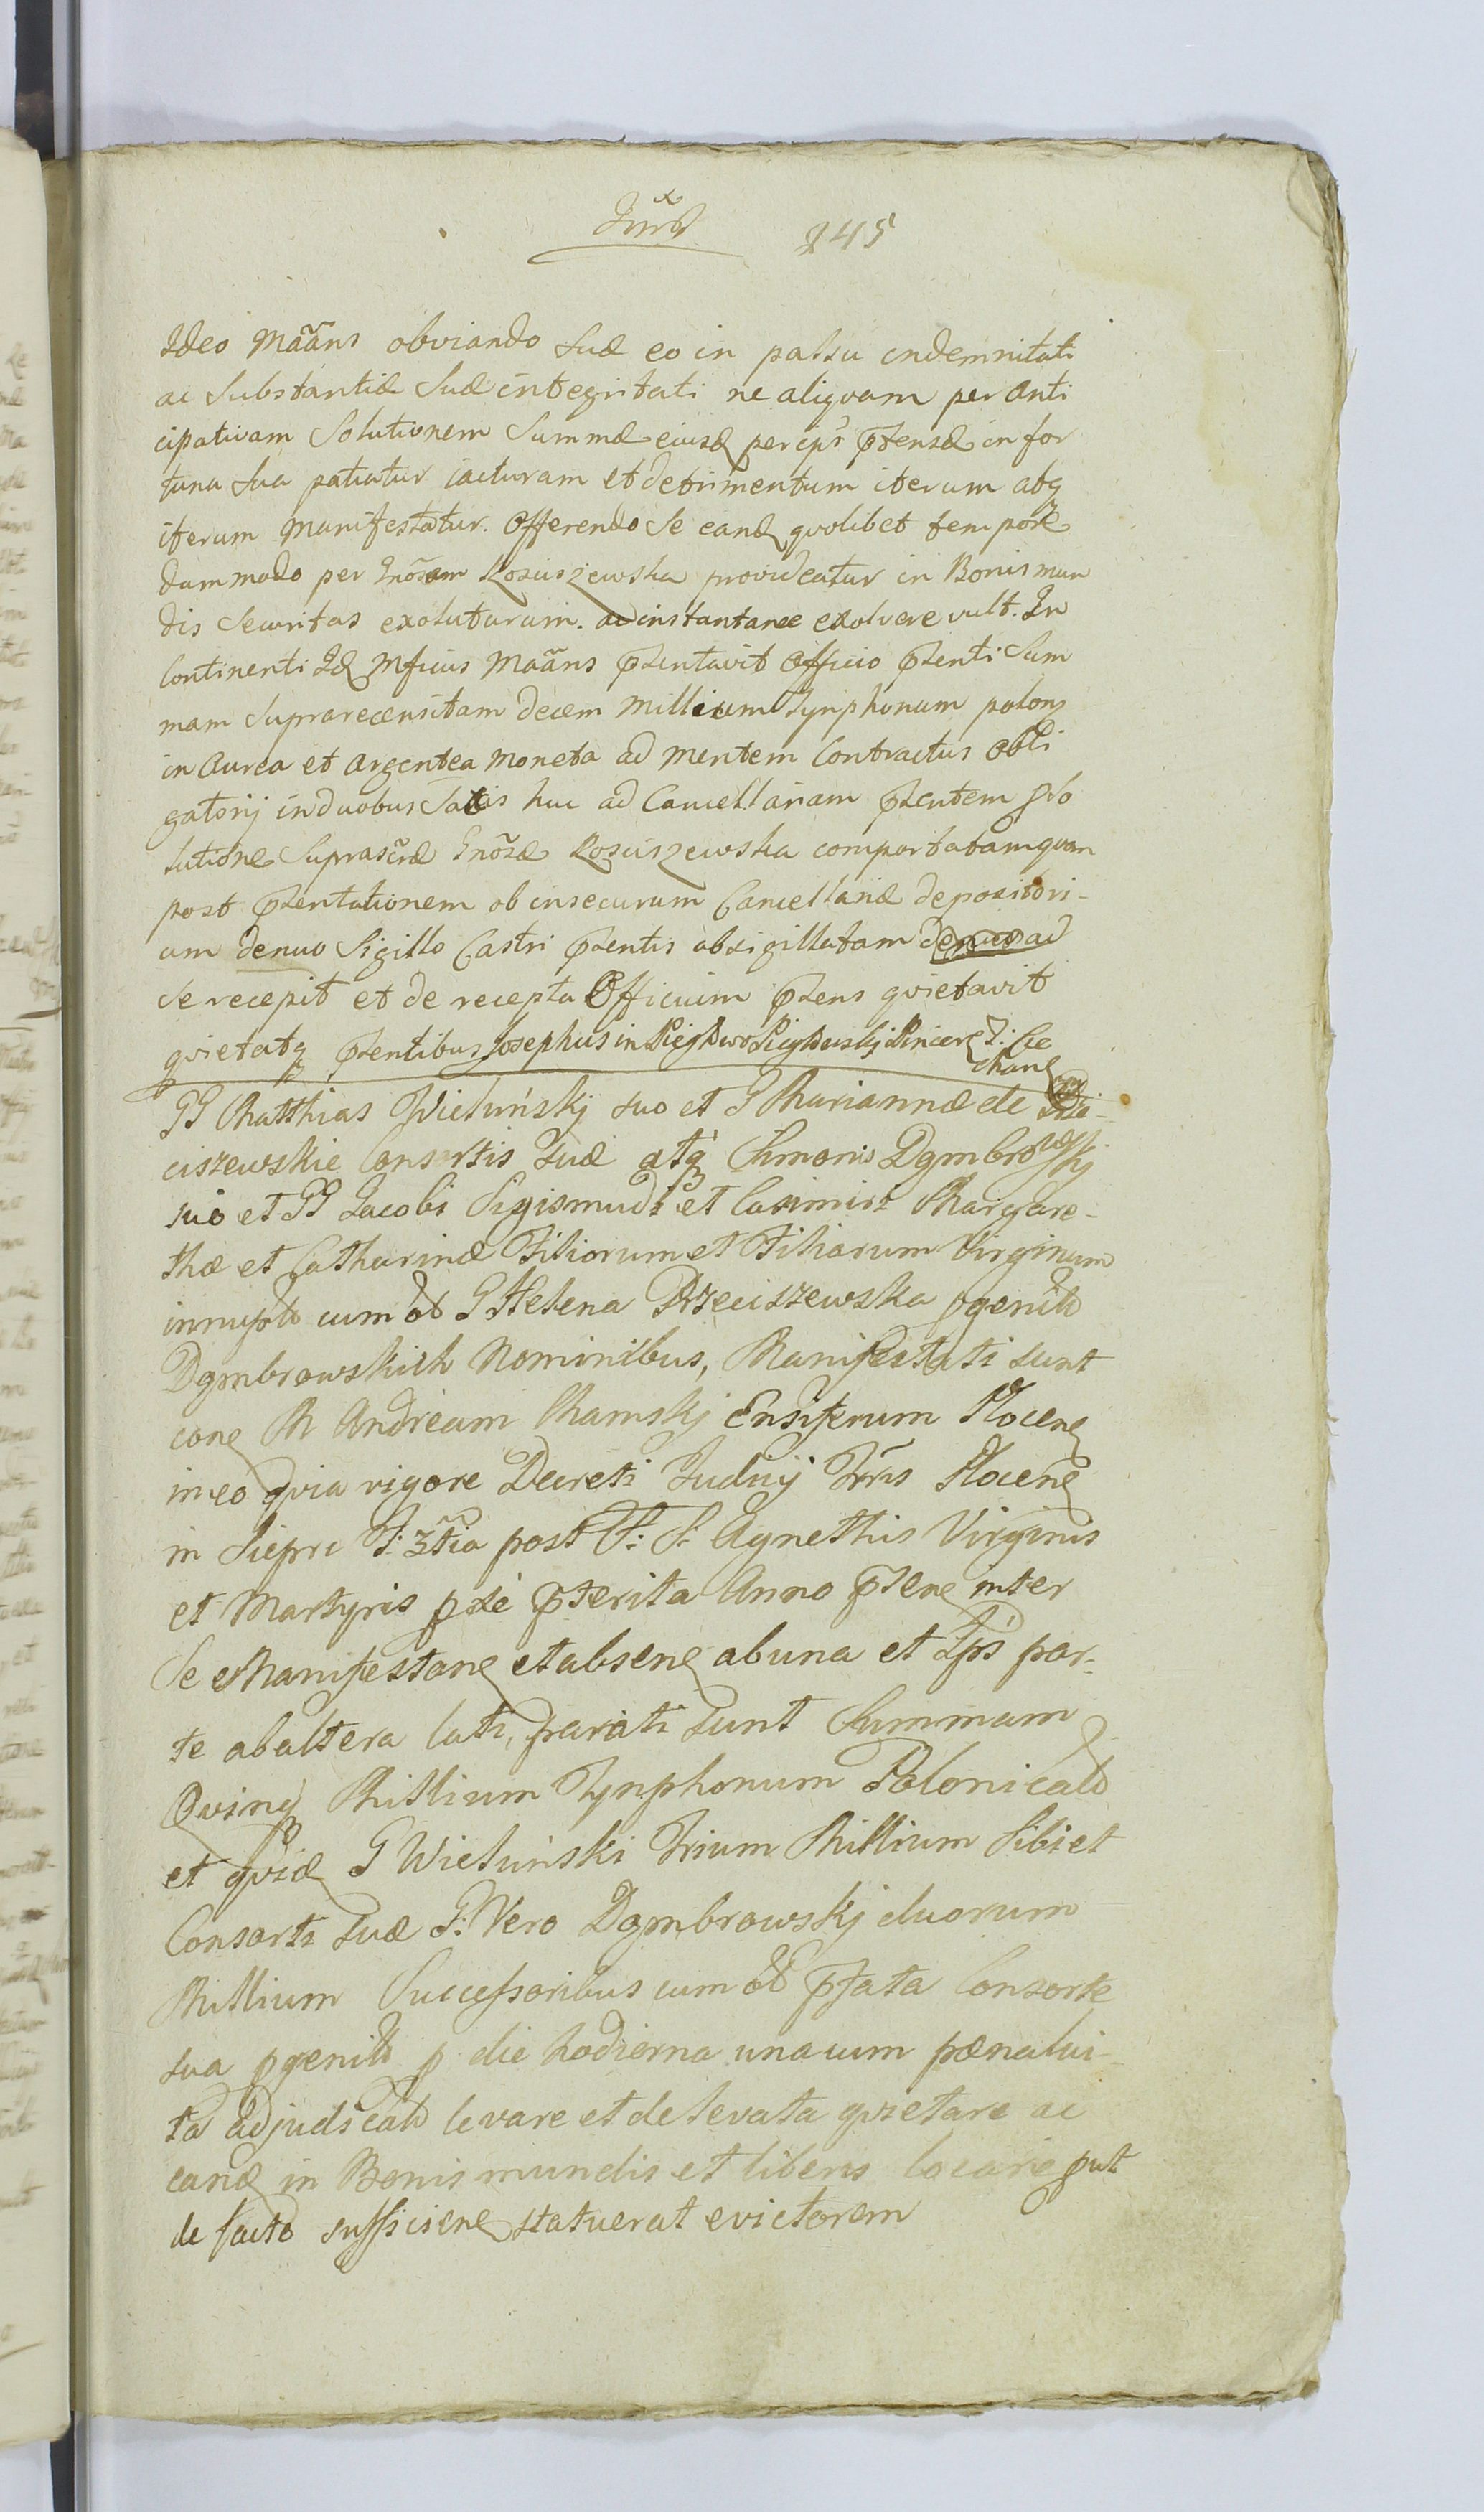 245
Ideo Mããns obviando suæ eo in passu indemnitati
ac Substantiæ Suæ integritati ne aliqvam per Anti
cipativam Solutionem Summæ eiusd per ips p̃tensæ in for
tuna sua patiatur iacturam et detrimentum iterum atq
iterum Manifestatur. Offerendo se eand qvolibet tempore
dum modo per Gnõsam Kosciszewska provideatur in Bonis mun
dis Securitas exoluturum. ad instantanee exolvere vult. In
Continenti Id Mficus Mããns p̃sentavit Officio p̃senti Sum
mam Suprarecensitam decem Millium Tynphonum polon
in Aurea et Argentea Moneta ad Mentem Contractus Obli
gatorij in duobus Saccis huc ad Cancellariam p̃sentem p̃ So
lutione Suprascr̃æ Gnõsæ Kosciszewska comportatam qvam
post p̃sentationem ob insecurum Cancellariæ depositori-
um denuo Sigillo Castri p̃sentis obsigillatam ad
se recepit et de recepta Officium p̃sens qvietavit
qvietatq p̃sentibus Josephus in
chan
GG Matthias Wieluńskj suo et G Mariannæ de
ciszewskie Consortis suæ atq Simonis Dgmbrowskj
suo et GG Jacobi Sigismudi et Casimiri Margare-
thæ et Catharinæ Filiorum et Filiarum Virginum
innupt cum ol G Helena Przeciszewska pgenit
Dgmbrowskich Nominibus, Manifestati sunt
con M Andream Mamskj Ensiferum Plocen
in eo qvia vigore Decreti Judicij Trris Plocen
in Sieprc F: 3tia post F: S: Agnethis Virginis
et Martyris pxe p̃terita Anno p̃sen inter
se Manifestan et absen ab una et Ips par-
te ab altera lati, parati sunt Summam
Qvinq Millium Tynphonum Polonical
et qvid G Wieluński Trium Millium Sibi et
Consorti suæ G: Vero Dgmbrowskj duorum
Millium Successoribus cum ol p̃fata Consorte
sua pgenit p die hodierna una cum pæna lui-
ta adjudicat levare et de levata qvietare ac
eand in Bonis mundis et liberis locare put
de facto sufficien statuerat evictorem